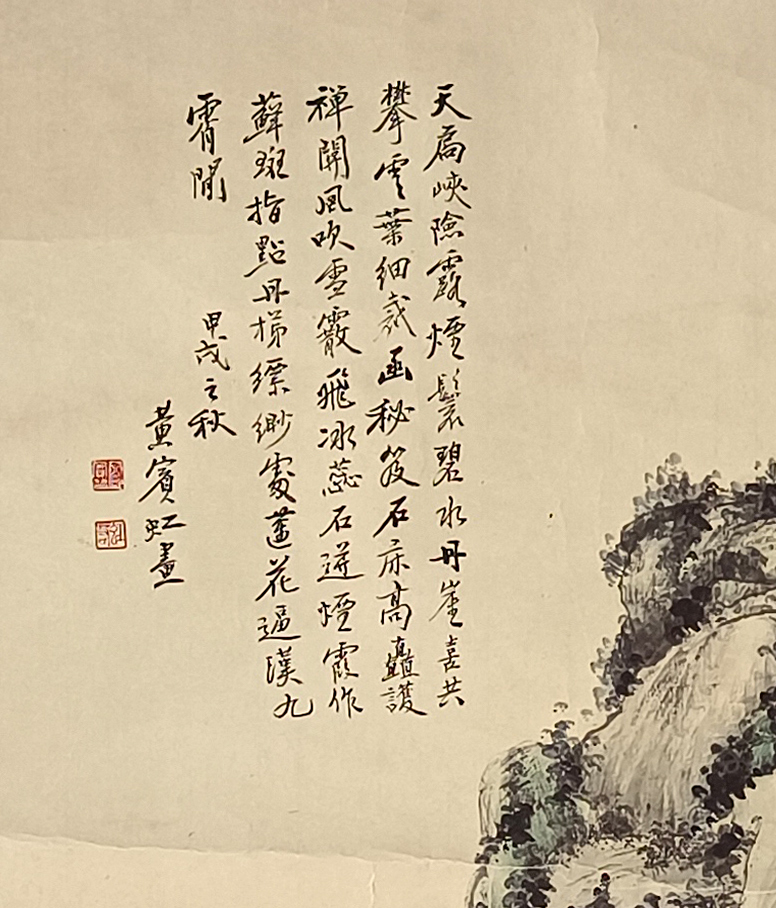 天扃峽險露煙鬟碧水丹崖喜共
攀雲葉細裁函秘笈石床高矗護
禅開風吹雪霰飛冰蕊石迸煙霞作
蘚斑指點丹梯縹緲處蓮花逼漢九
霄間
甲戌之秋
黃賓虹畫